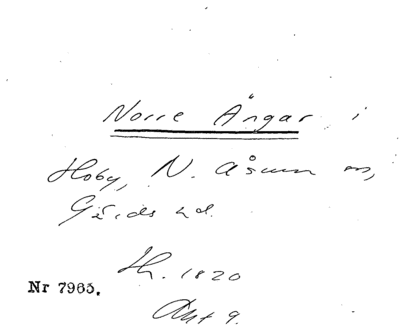 Norre Ängar i
Hoby, N. Åsum sn,
Gärds hd.
Th. 1820
Nr 7965.
Akt 9.